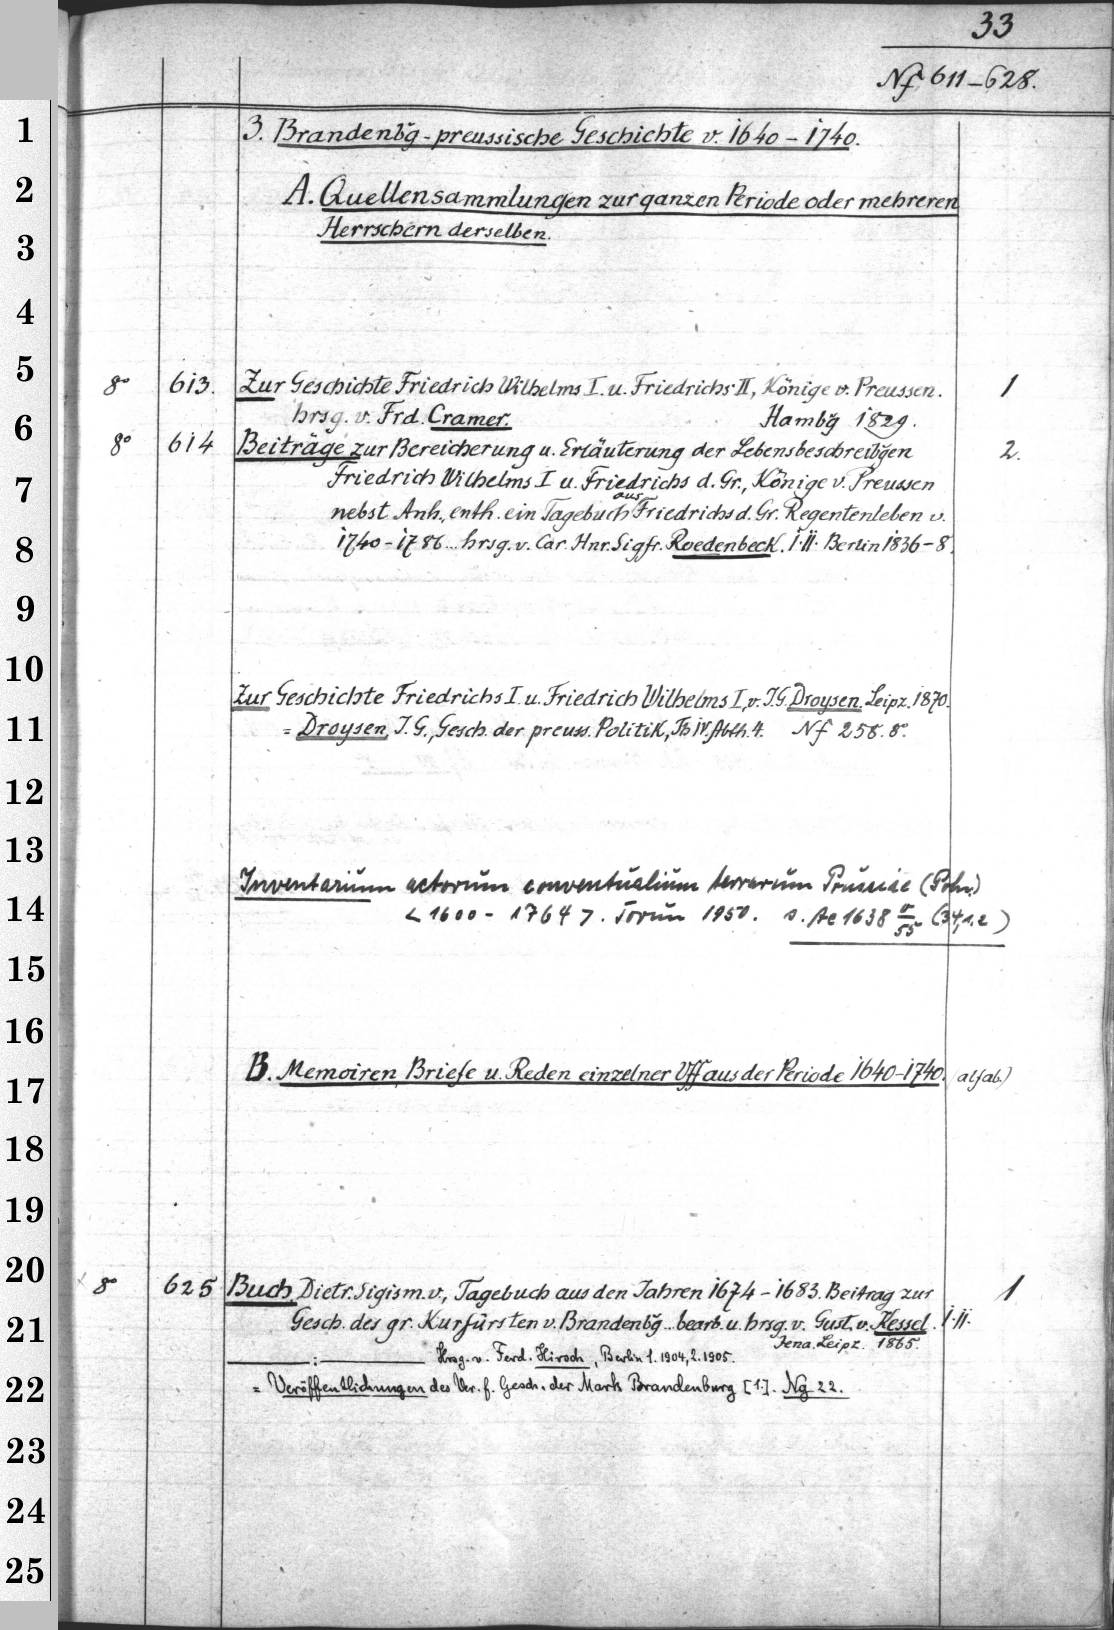 33
Nf 611-628.
1
3. Brandenbg̃-preussische Geschichte v. 1640-1740.
2
A. Quellensammlungen zur ganzen Periode oder mehreren
3
Herrschern derselben.
4
5
8° 613. Zur Geschichte Friedrich Wilhelms I. u. Friedrichs II, Könige v. Preussen. 1
6
hrsg. v. Frd. Cramer. Hambg̃ 1829.
8° 614 Beiträge zur Bereicherung u. Erläuterung der Lebensbeschreibg̃en 2.
7
Friedrich Wilhelms I u. Friedrichs d. Gr., Könige v. Preussen
aus
nebst Anh., enth. ein Tagebuch Friedrichs d. Gr. Regentenleben v.
8
1740-1786... hrsg. v. Car. Hnr. Sigfr. Roedenbeck. I.II. Berlin 1836-8.
9
10
Zur Geschichte Friedrichs I. u. Friedrich Wilhelms I, v. J.G. Droysen. Leipz. 1870.
11
= Droysen, J. G., Gesch. der preuss. Politik, Th IV. Abth. 4. Nf 258. 8°.
12
13
Inventarium actorum conventualium terrarum Prussiae (Poln.)
14
< 1600 - 1764 >. Toruń 1950. s. Ae 1638 (34,1.2)
55
15
16
B. Memoiren, Briefe u. Reden einzelner Vff aus der Periode 1640-1740. (alfab.)
17
18
19
20
8° 625 Buch, Dietr. Sigism. v., Tagebuch aus den Jahren 1674-1683. Beitrag zur 1
21
Gesch. des gr. Kurfürsten v. Brandenbg̃... bearb. u. hrsg. v. Gust. v. Kessel. I.II.
Jena. Leipz. 1865.
——:—— Hrsg. v. Ferd. Hirsch, Berlin 1. 1904, 2. 1905.
22
= Veröffentlichungen des Ver. f. Gesch. der Mark Brandenburg [1.]. Ng 22.
23
24
25